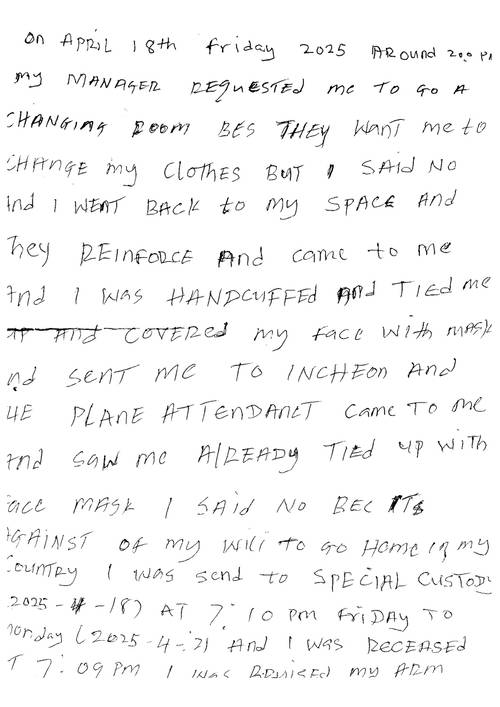 On APRIL 18th friday 2025 AROUND 2:00 PM
my MANAGER REQUESTED me TO GO A
CHANGING ROOM BES THEY WANT me to
CHANGE my CLOTHES BUT I SAID NO
And I WENT BACK to my SPACE And
They REINFORCE And came to me
And I WAS HANDCUFFEd And TIED me
UP And COVERED my face with MASK
And SENT ME TO INCHEON And
THE PLANE ATTENDANCT came TO me
And SAW me AlREADY TIED UP WITH
face MASK I SAid NO BEC ITS
AGAINST OF my Will to go Home in my
Country I WAS send to SPECIAL CUSTODY
(2025-4-18) AT 7:10 pm FRIDAY TO
monday (2025-4-21 And I WAS RECEASED
AT 7:09 PM I WAS my ARM